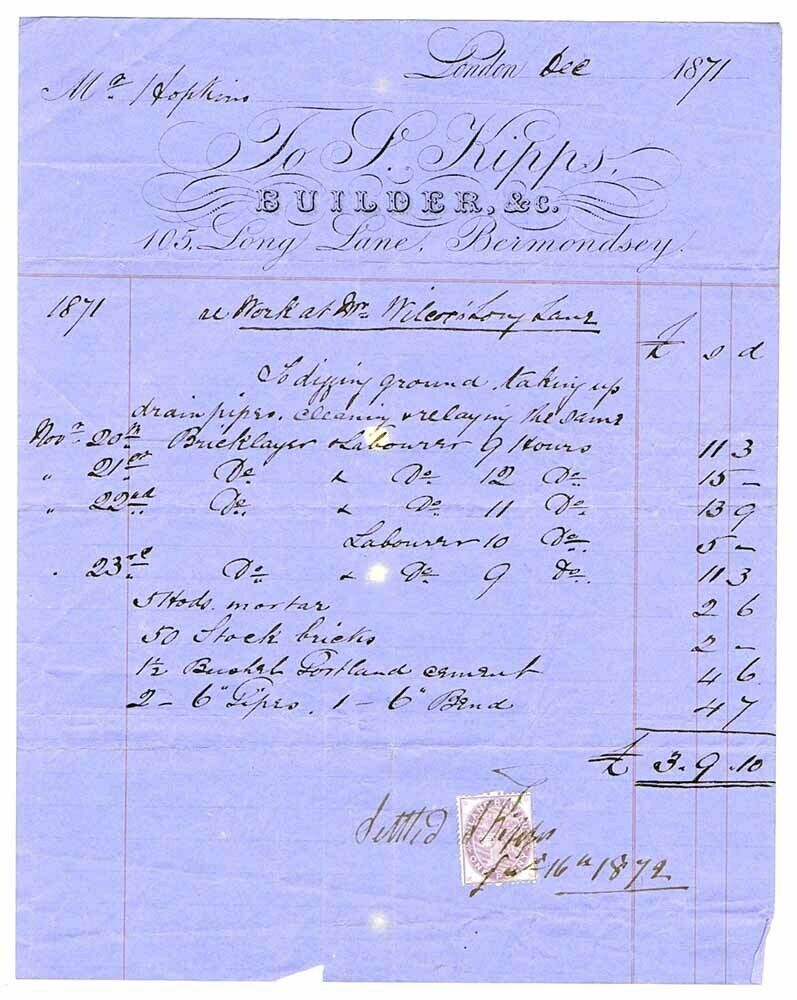 London Dec 1871
Mr. Hopkins
To S. Kipps,
BUILDER, &C.
105, Long Lane, Bermondsey.
1871 re Work at Mr. Wilcox's Long Lane
£ s d
To digging ground, taking up
drain pipes, cleaning & relaying the same
Novr. 20th Bricklayer & Labourer 9 Hours 11 3
" 21st Do. & Do. 12 Do. 15 –
" 22nd Do. & Do. 11 Do. 13 9
Labourer 10 Do. 5 –
" 23rd Do. & Do. 9 Do. 11 3
5 Hods. mortar 2 6
50 Stock bricks 2 –
1½ Bushel Portland cement 4 6
2 – 6" Pipes, 1 – 6" Bend 4 7
£ 3. 9. 10
Settled S Kipps
16th 1872